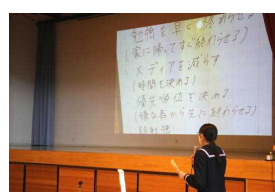 勉強を早く終わらせる
(家に帰ってすぐ終わらせる)
メディアを減らす
(時間を決める)
優先順位を決める
(得意な方から先に終わらせる)